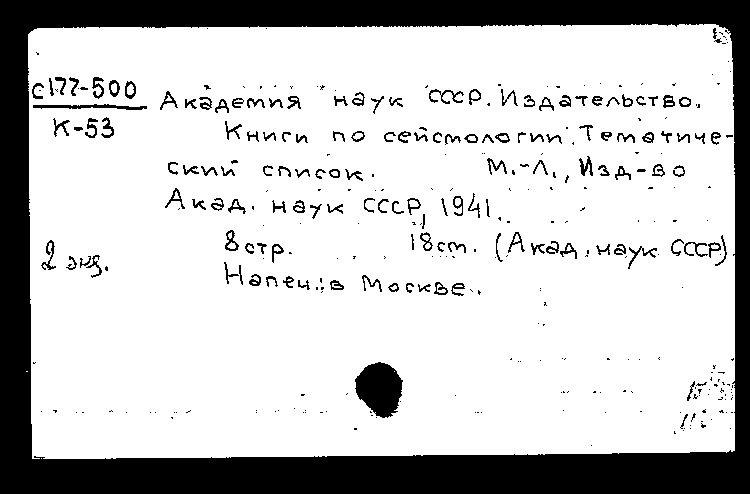 с177-500
К-53
Академия наук СССР. Издательство.
Книги по сейсмологии. Тематиче-
ский список. М.-Л., Изд-во
Акад. наук СССР, 1941.
8стр. 18см. (Акад. наук СССР).
Напеч.: в Москве.
2 экз.